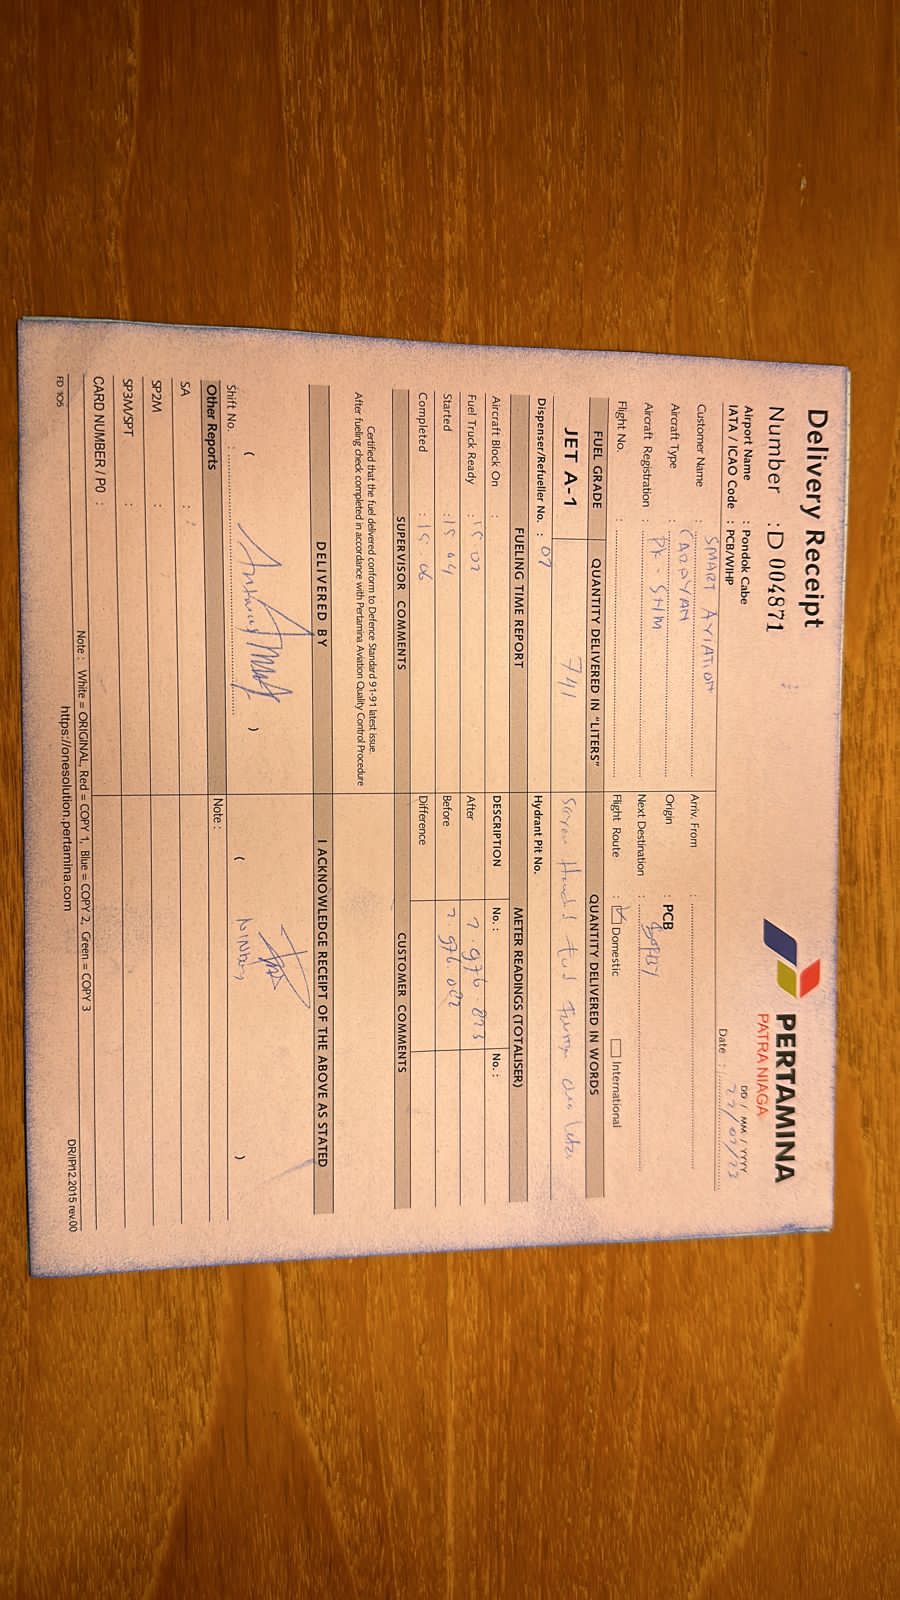 Delivery Receipt
PERTAMINA
PATRA NIAGA
Number : D 004871
Airport Name : Pondok Cabe
IATA / ICAO Code : PCB/WIHP
DD / MM / YYYY
Date :
Customer Name : SMART AVIATION
Arriv. From :
Aircraft Type : CARAVAN
Origin : PCB
Aircraft Registration : PK - SHM
Next Destination :
Flight No. :
Flight Route : Domestic International
FUEL GRADE QUANTITY DELIVERED IN "LITERS" QUANTITY DELIVERED IN WORDS
JET A-1 741 Seven
Dispenser/Refueller No. : 07 Hydrant Pit No.
FUELING TIME REPORT METER READINGS (TOTALISER)
Aircraft Block On : DESCRIPTION No. : No. :
Fuel Truck Ready : 15 02 After
Started : 15 04 Before
Completed : 15 06 Difference
SUPERVISOR COMMENTS CUSTOMER COMMENTS
Certified that the fuel delivered conform to Defence Standard 91-91 latest issue.
After fueling check completed in accordance with Pertamina Aviation Quality Control Procedure
DELIVERED BY I ACKNOWLEDGE RECEIPT OF THE ABOVE AS STATED
( ) ( )
Shift No. :
Other Reports Note :
SA :
SP2M :
SP3M/SPT :
CARD NUMBER / PO :
Note : White = ORIGINAL, Red = COPY 1, Blue = COPY 2, Green = COPY 3
FD 105 https://onesolution.pertamina.com DR/IP/12.2015 rev.00